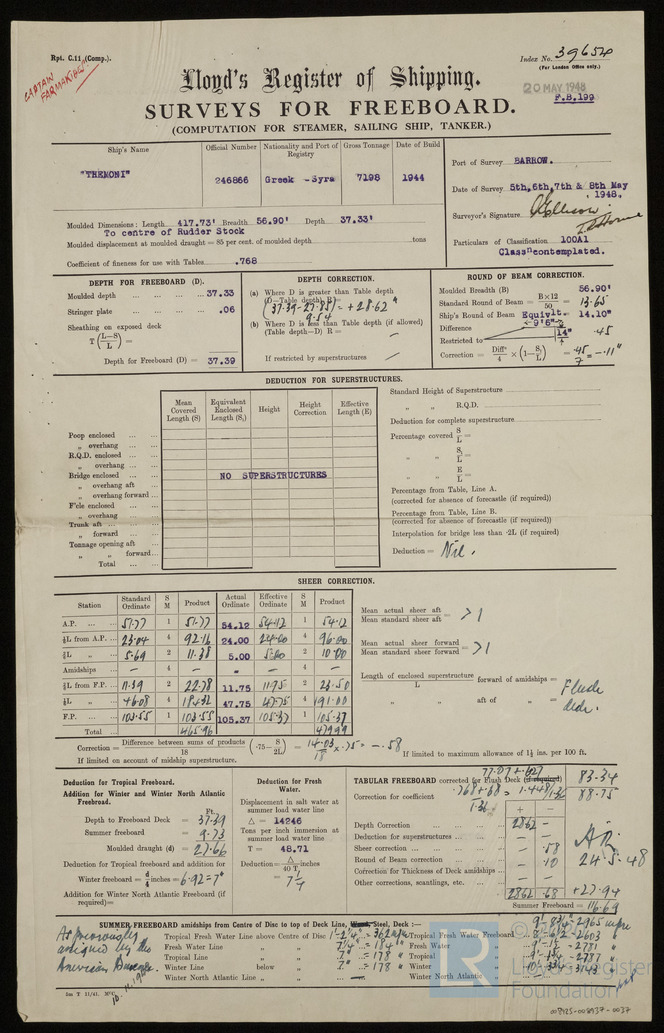 Rpt. C.11 (Comp.).
CAPTAIN FARMAKIDES
Index No. 39654
(For London Office only.)
Lloyd's Register of Shipping.
20 MAY 1948
F.B.199
SURVEYS FOR FREEBOARD.
(COMPUTATION FOR STEAMER, SAILING SHIP, TANKER.)
Ship's Name Official Number Nationality and Port of Registry Gross Tonnage Date of Build
"THEMONI" 246866 Greek - Syra 7198 1944
Port of Survey BARROW.
Date of Survey 5th, 6th, 7th & 8th May 1948.
Surveyor's Signature
Particulars of Classification 100A1
Classn contemplated.
Moulded Dimensions: Length 417.73' Breadth 56.90' Depth 37.33'
To centre of Rudder Stock
Moulded displacement at moulded draught = 85 per cent. of moulded depth tons
Coefficient of fineness for use with Tables .768
DEPTH FOR FREEBOARD (D).
Moulded depth 37.33
Stringer plate .06
Sheathing on exposed deck
T (L−S/L) =
Depth for Freeboard (D) = 37.39
DEPTH CORRECTION.
(a) Where D is greater than Table depth
(D−Table depth) R=
(37.39-27.85) = +28.62"
9.54
(b) Where D is less than Table depth (if allowed)
(Table depth−D) R = —
If restricted by superstructures —
ROUND OF BEAM CORRECTION.
Moulded Breadth (B) 56.90'
Standard Round of Beam = B×12/50 = 13.65
Ship's Round of Beam Equivlt. = 14.10"
9'6" 14"
Difference .45
Restricted to
Correction = Diffce/4 × (1−S1/L) = .45 = -.11"
DEDUCTION FOR SUPERSTRUCTURES.
Mean Covered Length (S) Equivalent Enclosed Length (S1) Height Height Correction Effective Length (E)
Poop enclosed
„ overhang
R.Q.D. enclosed
„ overhang
Bridge enclosed
„ overhang aft
„ overhang forward
F'cle enclosed
„ overhang
Trunk aft
„ forward
Tonnage opening aft
„ „ forward
Total
NO SUPERSTRUCTURES
Standard Height of Superstructure
„ „ R.Q.D.
Deduction for complete superstructure
Percentage covered S/L =
„ „ S1/L =
„ „ E/L =
Percentage from Table, Line A.
(corrected for absence of forecastle (if required))
Percentage from Table, Line B.
(corrected for absence of forecastle (if required))
Interpolation for bridge less than ·2L (if required)
Deduction = Nil.
SHEER CORRECTION.
Station Standard Ordinate S M Product Actual Ordinate Effective Ordinate S M Product
A.P. 51.77 1 51.77 54.12 54.12 1 54.12
⅙L from A.P. 23.04 4 92.16 24.00 24.00 4 96.00
⅓L „ 5.69 2 11.38 5.00 5.00 2 10.00
Amidships — 4 — — — 4 —
⅓L from F.P. 11.39 2 22.78 11.75 11.75 2 23.50
⅙L „ 46.08 4 184.32 47.75 47.75 4 191.00
F.P. 103.55 1 103.55 105.37 105.37 1 105.37
Total 465.96 479.99
Mean actual sheer aft / Mean standard sheer aft = >1
Mean actual sheer forward / Mean standard sheer forward = >1
Length of enclosed superstructure / L forward of amidships =
„ aft of „ =
Flush deck.
Correction = Difference between sums of products / 18 (·75−S/2L) = 14.03/18 × .75 = -.58
If limited on account of midship superstructure.
If limited to maximum allowance of 1½ ins. per 100 ft.
Deduction for Tropical Freeboard.
Addition for Winter and Winter North Atlantic Freeboard.
Ft.
Depth to Freeboard Deck = 37.39
Summer freeboard = 9.73
Moulded draught (d) = 27.66
Deduction for Tropical freeboard and addition for
Winter freeboard = d/4 inches = 6.92 = 7"
Addition for Winter North Atlantic Freeboard (if required)=
Deduction for Fresh Water.
Displacement in salt water at summer load water line
Δ = 14246
Tons per inch immersion at summer load water line
T = 48.71
Deduction = Δ/40 T inches
= 7¼"
77.07 + 6.27
TABULAR FREEBOARD corrected for Flush Deck (if required) 83.34
Correction for coefficient .768+.68/1.36 = 1.448/1.36 88.75
+ −
Depth Correction 28.62 —
Deduction for superstructures — —
Sheer correction — .58
Round of Beam correction — .10
Correction for Thickness of Deck amidships — —
Other corrections, scantlings, etc. — —
28.62 .68 +27.94
Summer Freeboard = 116.69
24-5-48
SUMMER FREEBOARD amidships from Centre of Disc to top of Deck Line, Wood, Steel, Deck :—
As previously assigned by the American Bureau.
Tropical Fresh Water Line above Centre of Disc 1'-2¼" = 362 mm
Fresh Water Line „ „ 7¼" = 184 „
Tropical Line „ „ 7" = 178 „
Winter Line below „ 7" = 178 „
Winter North Atlantic Line „ „ —
9'-8¾" = 2965 mm
Tropical Fresh Water Freeboard 8'-6½" = 2603 „
Fresh Water „ 9'-1½" = 2781 „
Tropical „ 9'-1¾" = 2787 „
Winter „ 10'-3¾" = 3143 „
Winter North Atlantic „
Lloyd's Register Foundation
008925-008937-0037